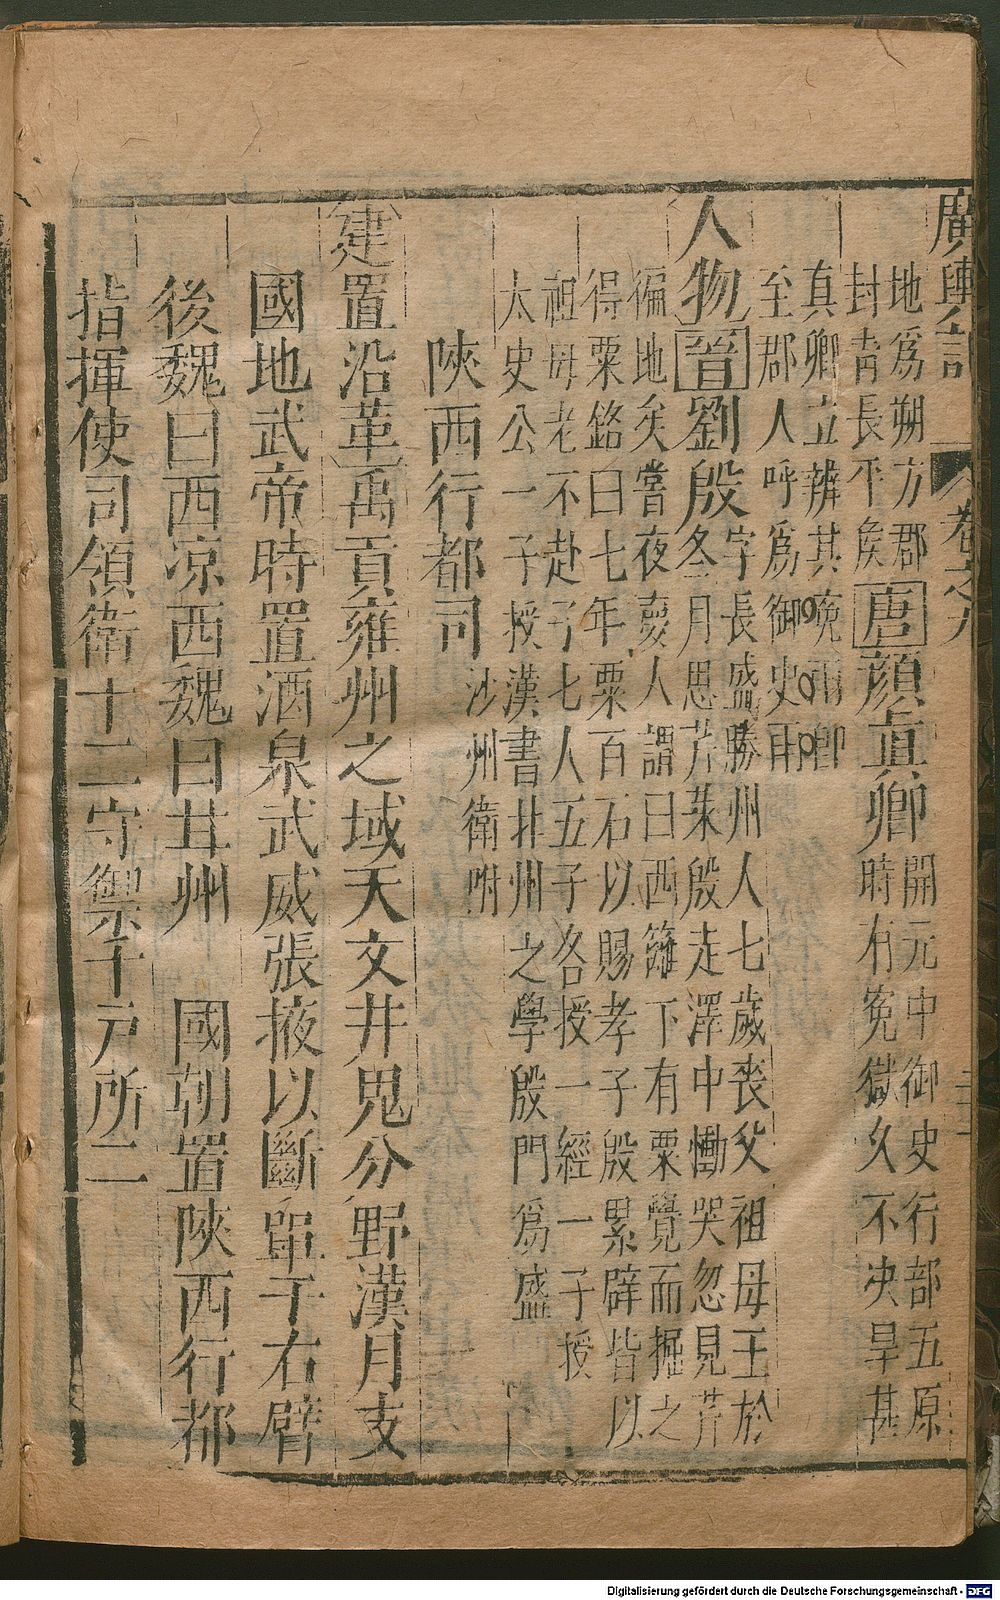 廣輿記 卷之九
地爲朔方郡
封青長平侯
唐
顔真卿
開元中御史行部五原
時有冤獄久不決旱甚
真卿立辨其冤雨卽
至郡人呼爲御史雨
人物
晉
劉殷
字長盛勝州人七歲喪父祖母王於
冬月思芹茱殷走澤中慟哭忽見芹
徧地矣嘗夜夢人謂曰西籬下有粟覺而掘之
得粟銘曰七年粟百石以賜孝子殷累辟皆以
祖母老不赴子七人五子各授一經一子授
太史公一子授漢書北州之學殷門爲盛
陝西行都司 沙州衛附
建置沿革
禹貢雍州之域天文井鬼分野漢月支
國地武帝時置酒泉武威張掖以斷單于右臂
後魏曰西凉西魏曰甘州 國朝置陝西行都
指揮使司領衛十二守禦千戸所二
Digitalisierung gefördert durch die Deutsche Forschungsgemeinschaft - DFG